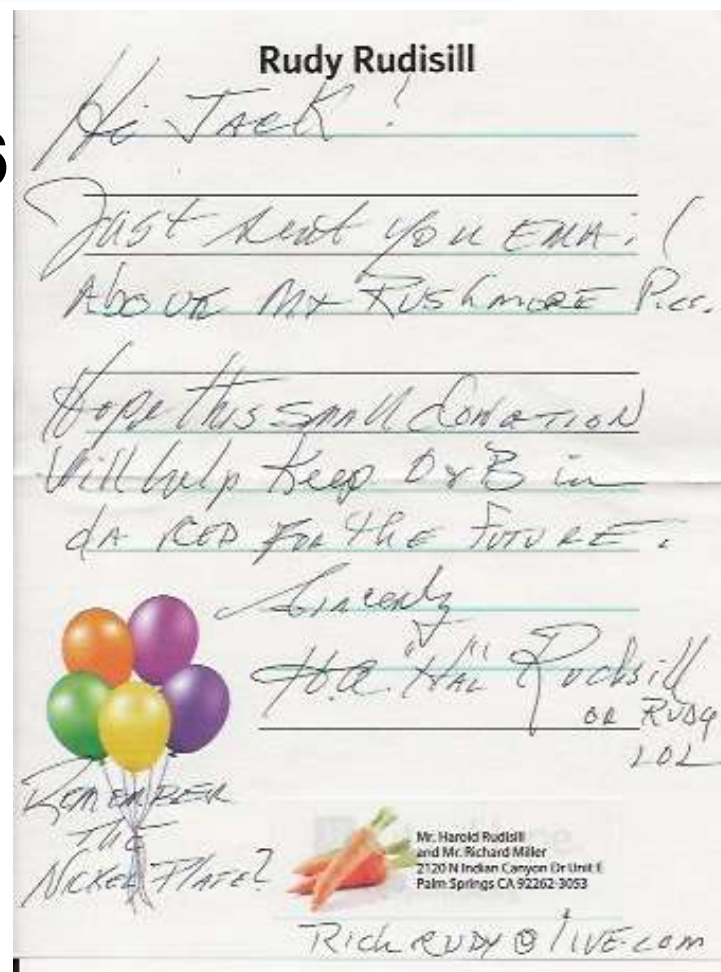 6
Rudy Rudisill
Hi JAcK !
Just sent you EMAil
AboVE Mt RUShMORE Pics.
Hope this small donation
Will help Keep O&B in
dA RED FOR the FUTURE.
Sincerly
H.A. "HAL" Rudisill
OR RUDY
LOL
REMEMBER
THE
NICKEL PLATE?
Mr. Harold Rudisill
and Mr. Richard Miller
2120 N Indian Canyon Dr Unit E
Palm Springs CA 92262-3053
Rich RUDY @ lIVE.com